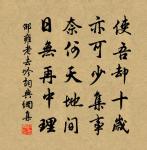 使吾却十歲
亦可少集事
奈何天地间
日無再中理
邵雍老去吟詞典網集